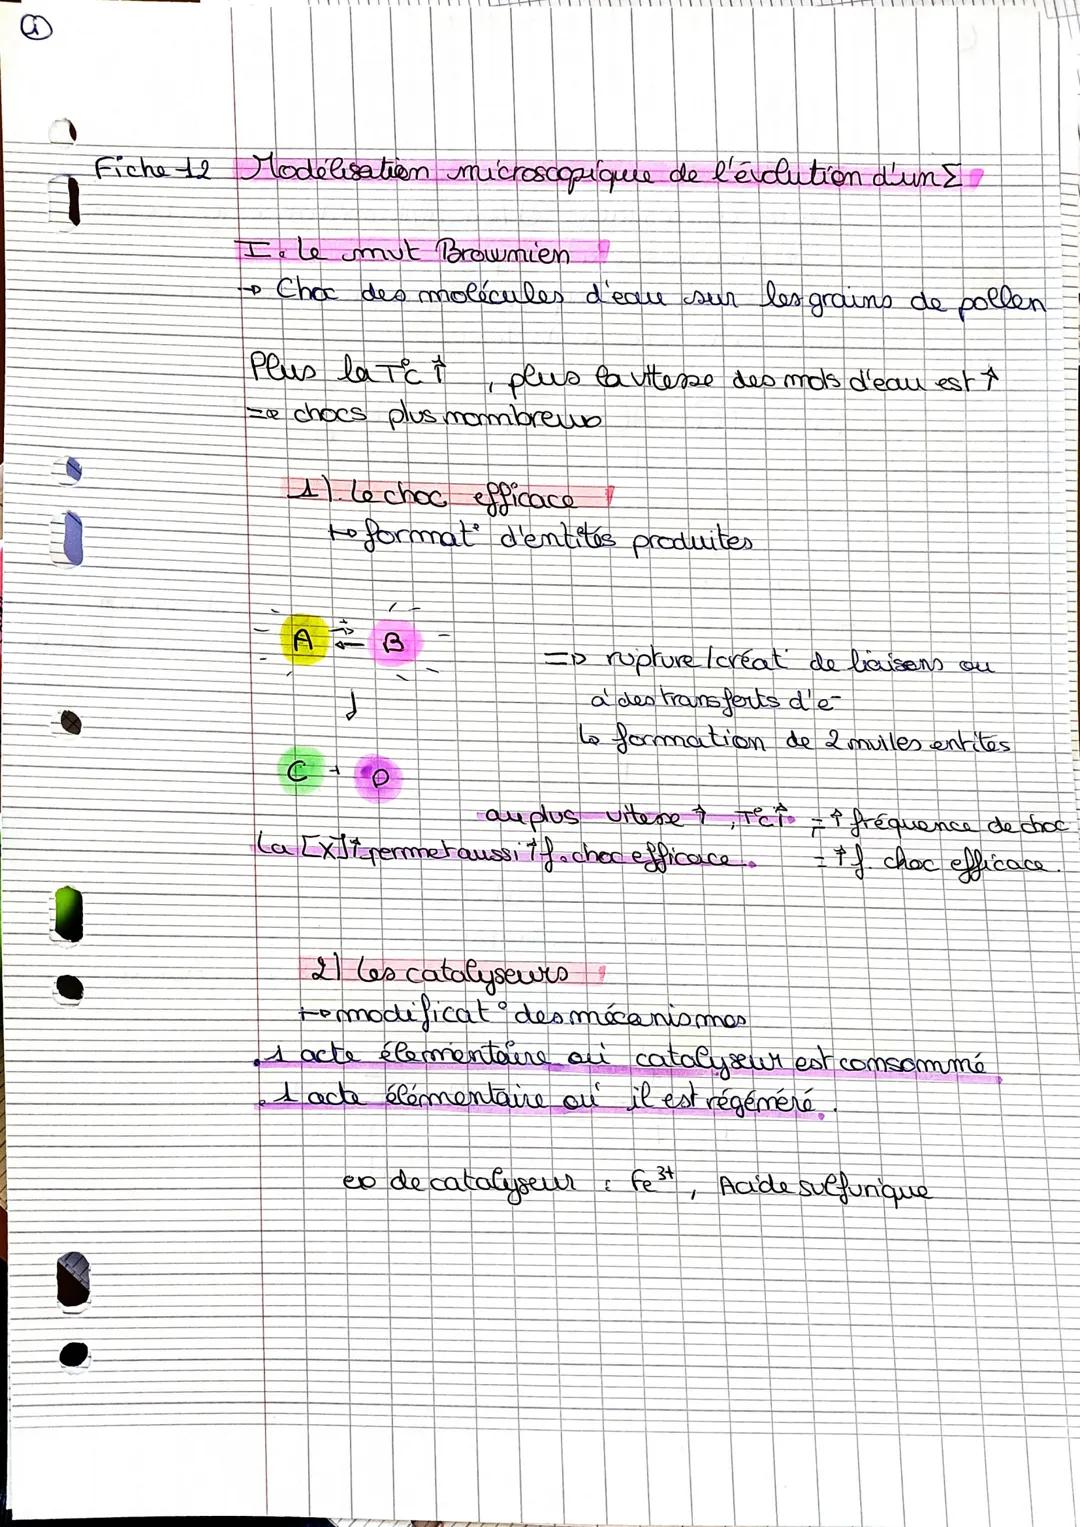 ①
Fiche 12 Modélisation microscopique de l'évolution d'un Σ
I. Le mvt Brownien
→ Choc des molécules d'eau sur les grains de pollen
Plus la T°C ↑, plus la vitesse des mols d'eau est ↑
=> chocs plus nombreux
1). Le choc efficace
↦ format° d'entités produites
A ⇄ B
=> rupture/créat° de liaisons ou
à des transferts d'e⁻
↳ formation de 2 nvlles entités
C + D
au plus vitesse ↑, T°C ↑ = ↑ fréquence de choc
La [X] ↑ permet aussi ↑ f. choc efficace. = ↑ f. choc efficace.
2) Les catalyseurs
↦ modificat° des mécanismes
. 1 acte élémentaire où catalyseur est consommé
. 1 acte élémentaire où il est régénéré.
ex de catalyseur : Fe³⁺, Acide sulfurique